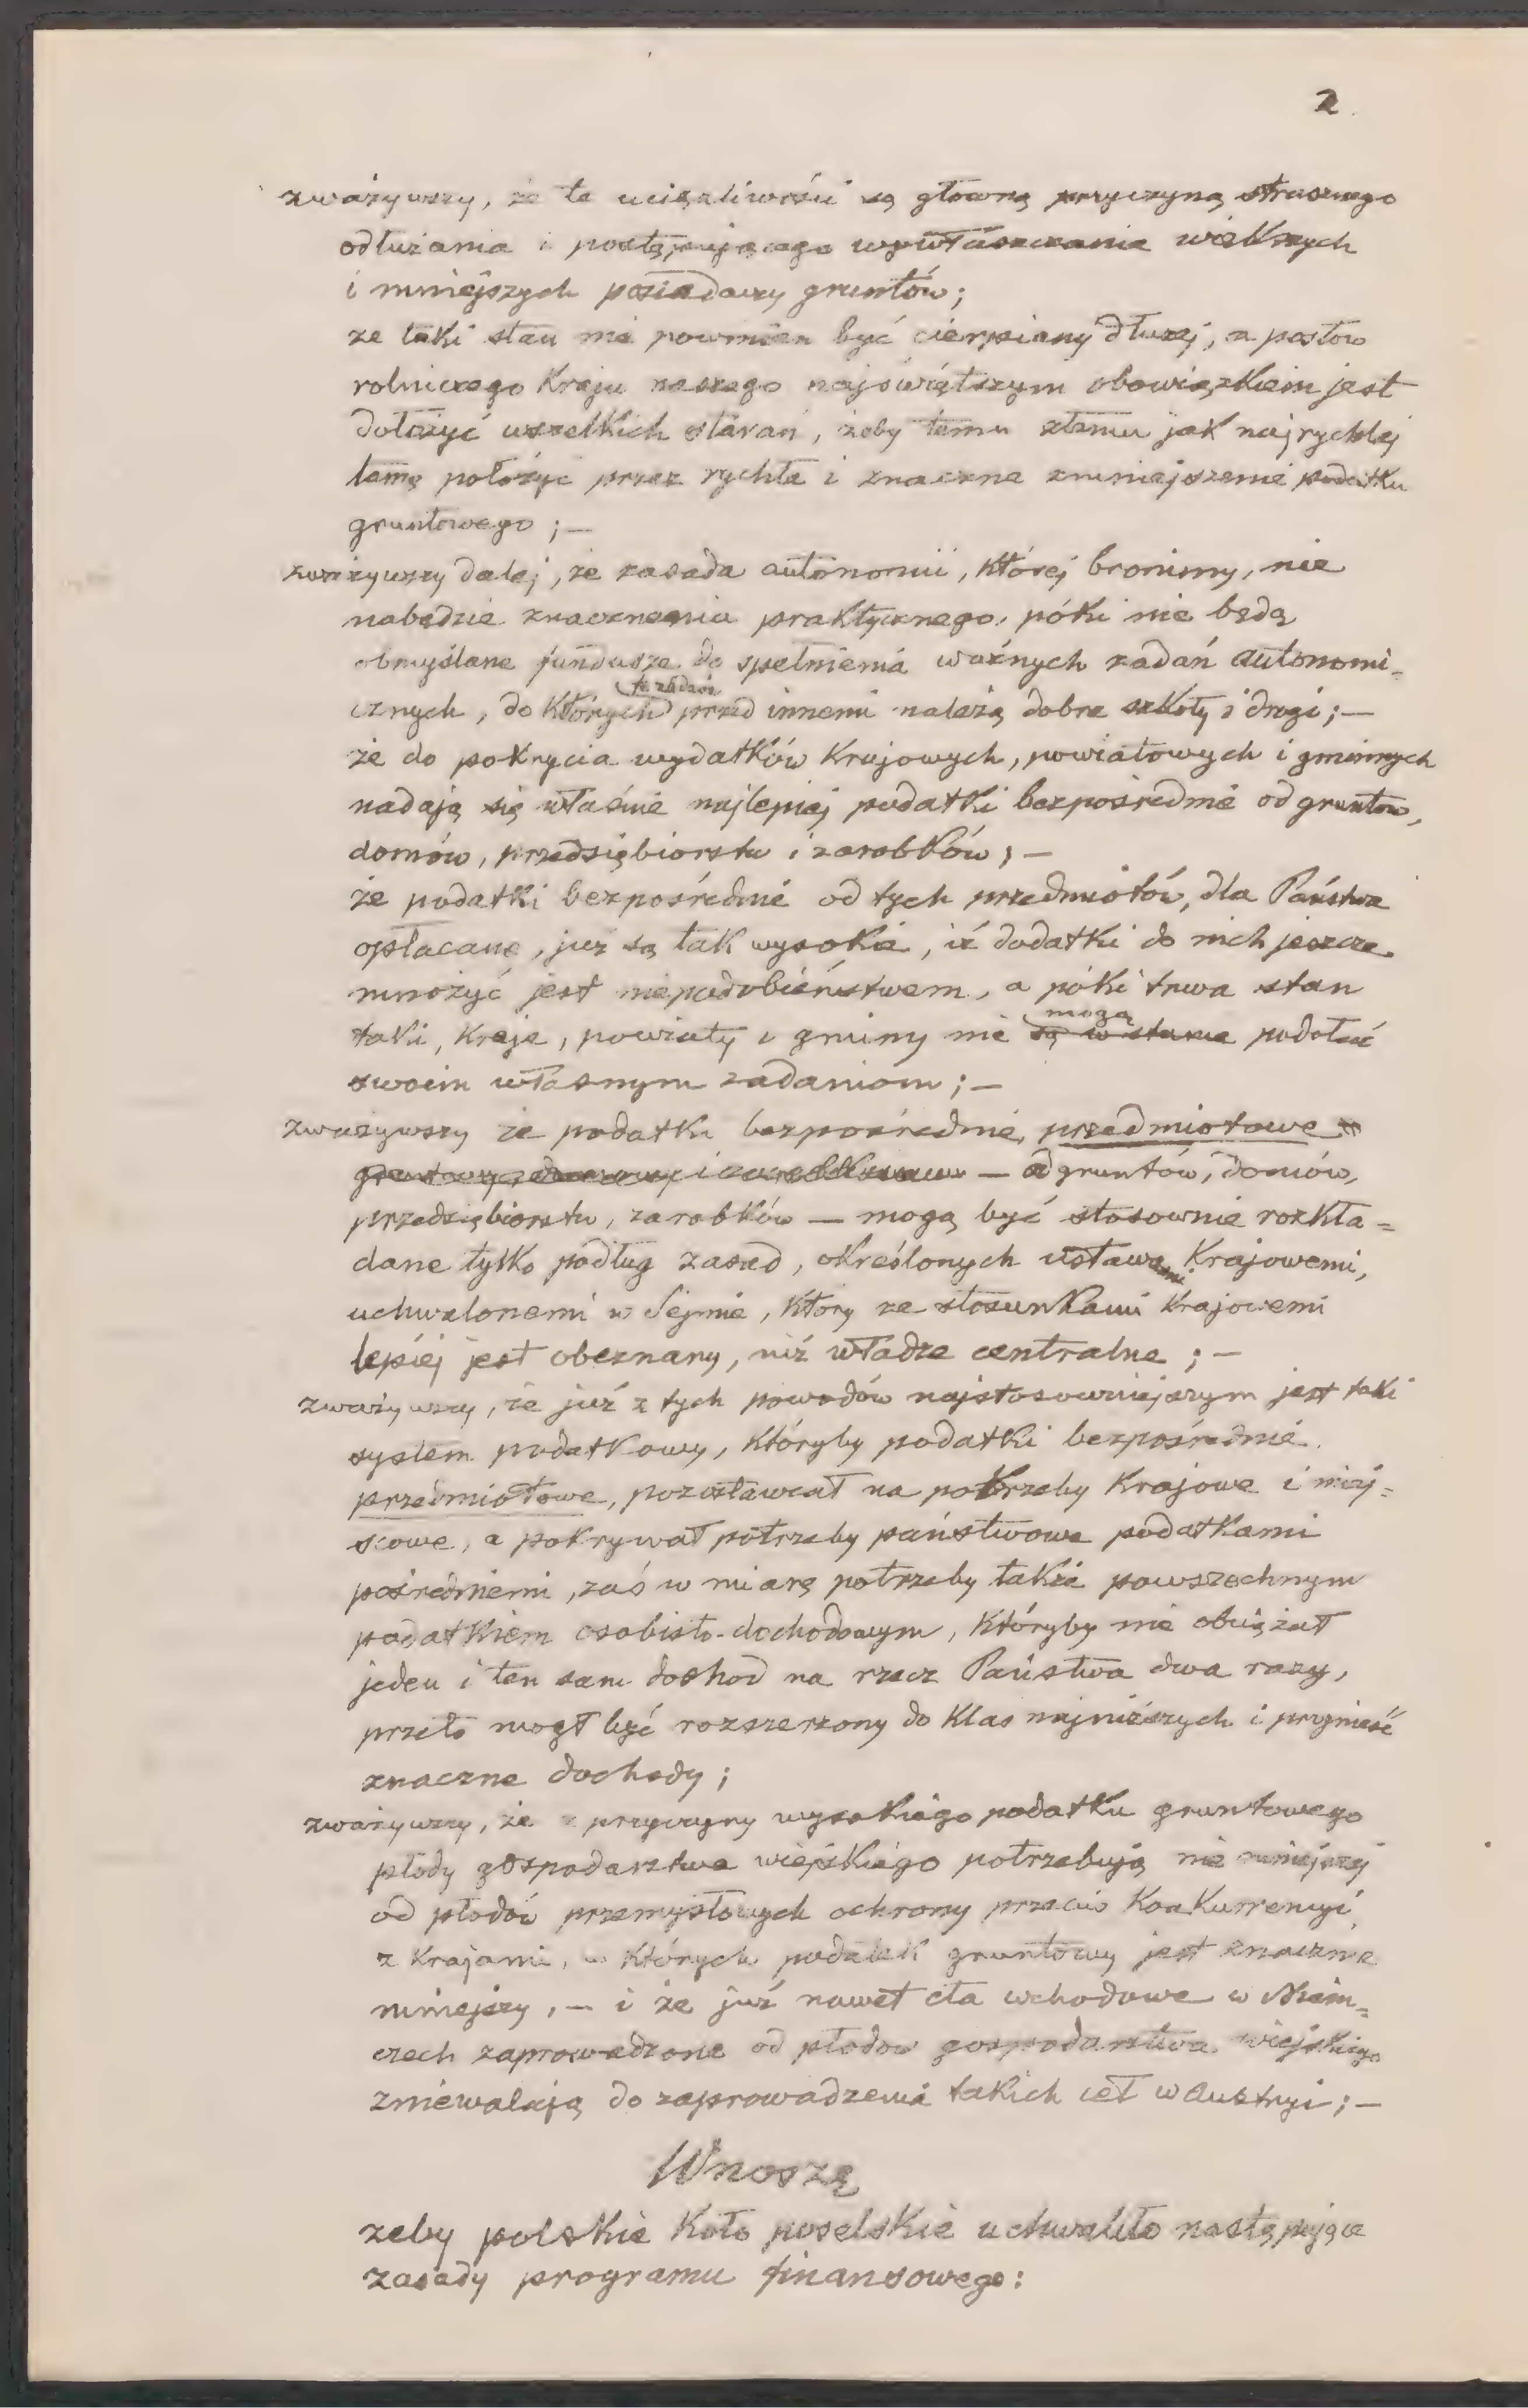 2.
zważywszy, że te uciążliwości są główną przyczyną strasznego
odłużania i postępującego wywłaszczania większych
i mniejszych posiadaczy gruntów;
że taki stan nie powinien być cierpiany dłużej, a posłów
rolniczego Kraju naszego najświętszym obowiązkiem jest
dołożyć wszelkich starań, żeby temu złemu jak najrychlej
tamę położyć przez rychłe i znaczne zmniejszenie podatku
gruntowego; —
zważywszy dalej, że zasada autonomii, której bronimy, nie
nabędzie znaczenia praktycznego, póki nie będą
obmyślane fundusze do spełnienia ważnych zadań autonomi=
cznych, do których przed innemi należą dobre szkoły i drogi; —
że do pokrycia wydatków Krajowych, powiatowych i gminnych
nadają się właśnie najlepiej podatki bezpośrednie od gruntów,
domów, przedsiębiorstw i zarobków; —
że podatki bezpośrednie od tych przedmiotów, dla Państwa
opłacane, już są tak wysokie, iż dodatki do nich jeszcze
mnożyć jest niepodobieństwem, a póki trwa stan
taki, Kraje, powiaty i gminy nie mogą
są w stanie podołać
swoim własnym zadaniom; —
zważywszy że podatki bezpośrednie, przedmiotowe
— od gruntów, domów,
przedsiębiorstw, zarobków — mogą być stosownie rozkła=
dane tylko podług zasad, określonych ustawami Krajowemi,
uchwalonemi w Sejmie, który ze stosunkami Krajowemi
lepiej jest obeznany, niż władze centralne; —
zważywszy, że już z tych powodów najstosowniejszym jest taki
system podatkowy, któryby podatki bezpośrednie
przedmiotowe, pozostawiał na potrzeby Krajowe i miej=
scowe, a pokrywał potrzeby państwowe podatkami
pośredniemi, zaś w miarę potrzeby także powszechnym
podatkiem osobisto-dochodowym, któryby nie obciążał
jeden i ten sam dochod na rzecz Państwa dwa razy,
przeto mogł być rozszerzony do Klas najniższych i przynieść
znaczne dochody;
zważywszy, że z przyczyny wysokiego podatku gruntowego
płody gospodarstwa wiejskiego potrzebują nie mniejszej
od płodów przemysłowych ochrony przeciw Konkurrencyi
z Krajami, w których podatek gruntowy jest znacznie
mniejszy, — i że już nawet cła wchodowe w Niem=
czech zaprowadzone od płodów gospodarstwa wiejskiego
zniewalają do zaprowadzenia takich ceł w Austryi; —
Wnoszę
żeby polskie Koło poselskie uchwaliło następujące
zasady programu finansowego: